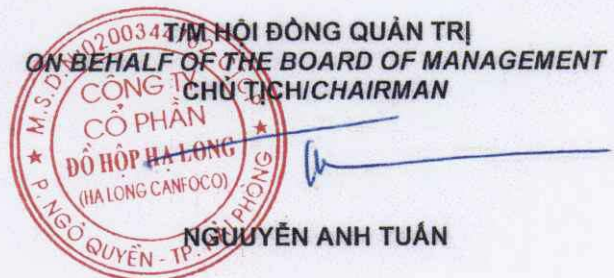 T/M HỘI ĐỒNG QUẢN TRỊ
ON BEHALF OF THE BOARD OF MANAGEMENT
CHỦ TỊCH/CHAIRMAN
CÔNG TY
CỔ PHẦN
ĐỒ HỘP HẠ LONG
(HA LONG CANFOCO)
P. NGÔ QUYỀN - TP. HẢI PHÒNG
NGUUYỄN ANH TUẤN